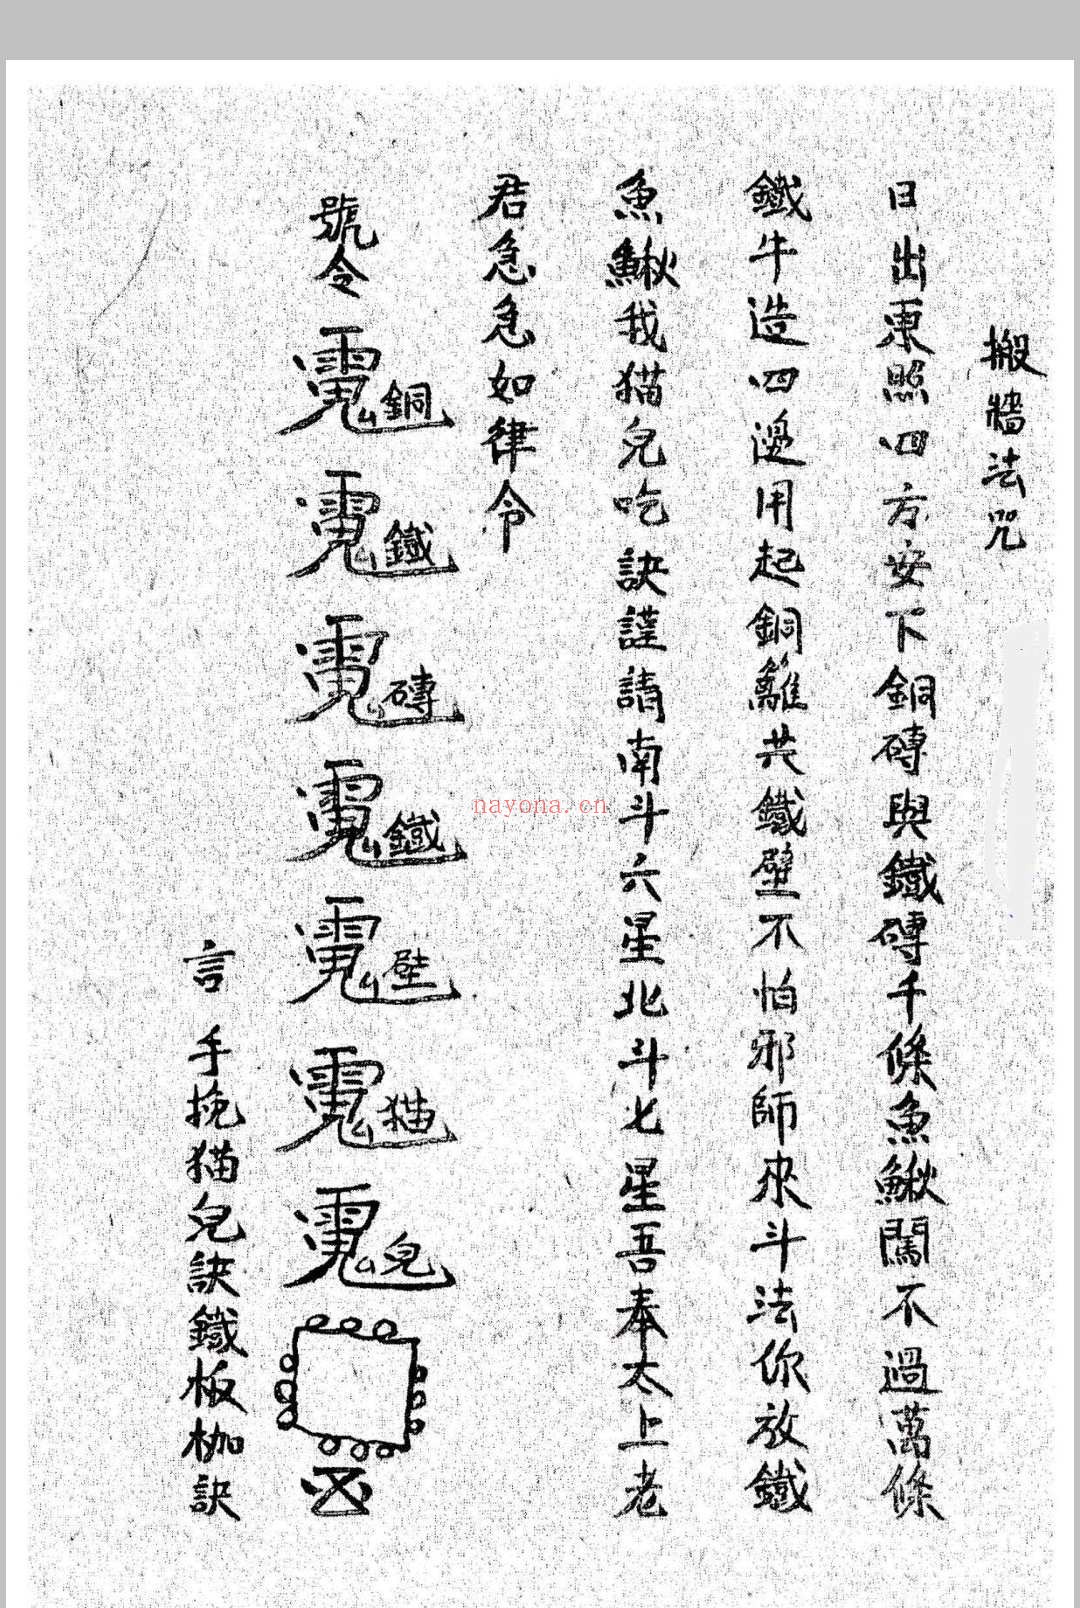 搬牆法咒
日出東照四方安下銅磚與鐵磚千條魚鰍闖不過萬條
鐵牛造四邊用起銅籬共鐵壁不怕邪師來斗法你放鐵
魚鰍我猫兒吃訣謹請南斗六星北斗七星吾奉太上老
君急急如律令
號令 銅 鐵 磚 鐵 壁 猫 兒
言 手挽猫兒訣鐵板枷訣
nayona.cn